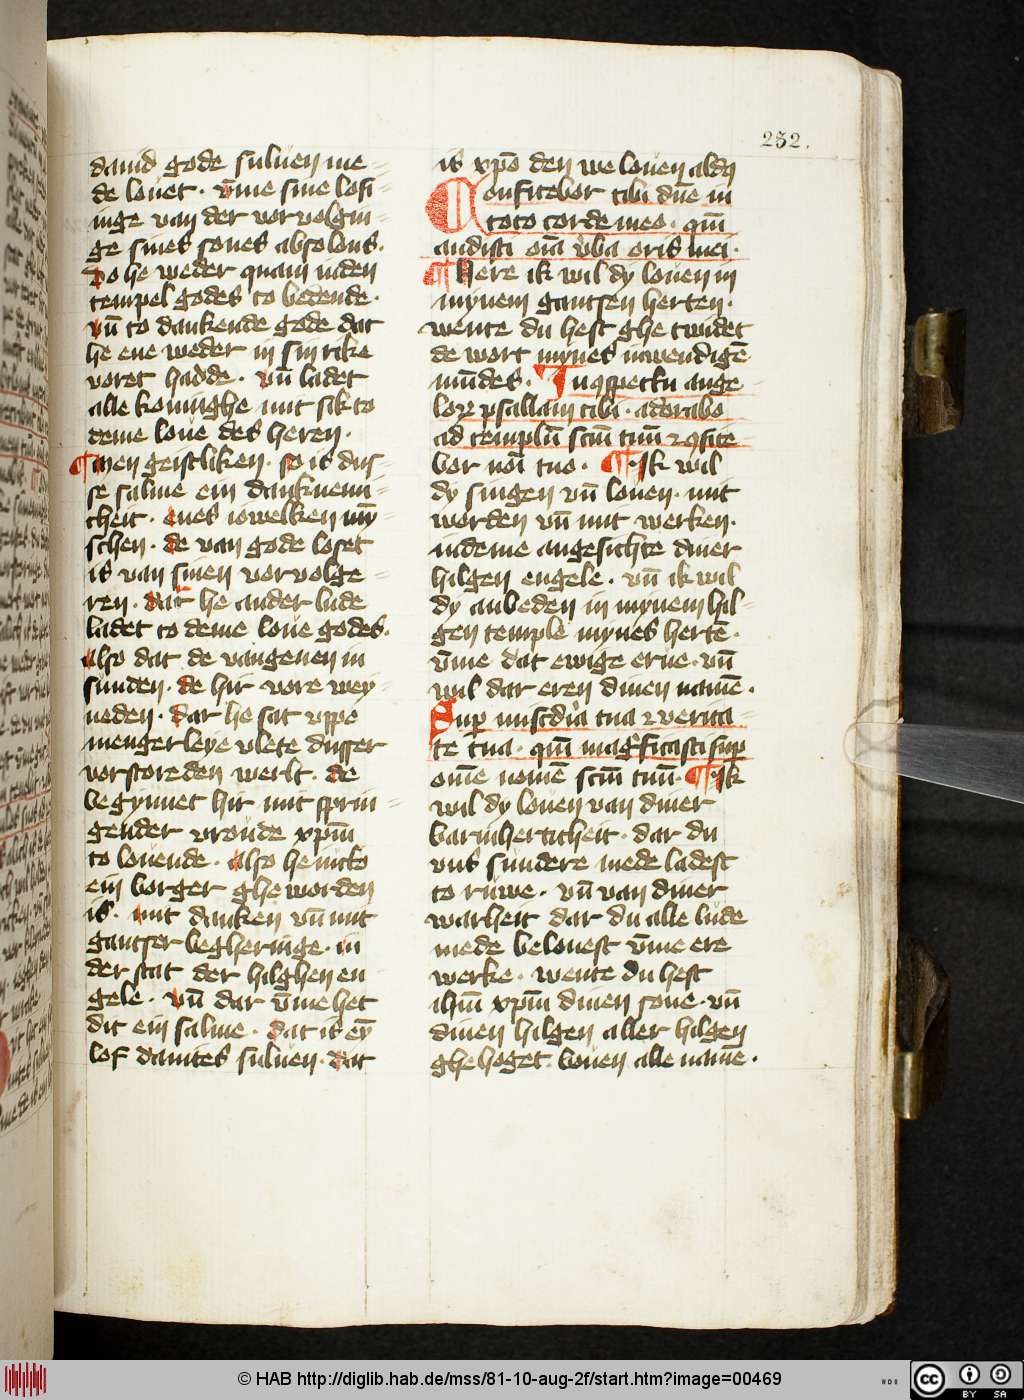 252.
dauid gode suluen me-
de louet. vm̄me sine losi-
inge van der vorvolgin-
ge sines sones absolons.
Do he weder quam in den
tempel godes to bedende.
vn̄ to dankende gode dat
he ene weder in sin rike
voret hadde. vn̄ ladet
alle koninghe mit sik to
deme loue des heren.
¶ Men geistliken. so is dus-
se salme ein danknemi-
cheit. enes iowelken my̅
schen. de van gode loset
is van sinen vorvolge-
ren. dat he ander lude
ladet to deme loue godes.
also dat de vangenen in
sunden. de hir vore wey-
neden. dar he sat vppe
mengerleye vlete dusser
vorstoreden werlt. de
begynnet hir mit sprin-
gender vroude xpm̅
to louende. also he
ein borger gheworden
is. mit danken vn̄ mit
gantser begheringe. in
der stat der hilghen en-
gele. vn̄ dar vm̄me het
dit ein salme. dat is ey̅
lof dauites suluen. dat
is xpo̅ den we louen
Confitebor tibi dn̅e in
toto corde meo. qm̅
audisti oi̅a v̾ba oris mei.
¶ Here ik wil dy louen in
mynem gantsen herten.
wente du hest ghetwidet
de wort mynes inwendige̅
mu̅des. In ꝯspectu ange-
loꝝ psallam tibi. adorabo
ad templu̅ scm̅ tuu̅ ⁊ ꝯfite
bor noi̅ tuo. ¶ Ik wil
dy singen vn̄ louen. mit
worden vn̄ mit werken.
in deme angesichte diner
hilgen engele. vn̄ ik wil
dy anbeden in mynem hil-
gen temple mynes herte̅.
vm̄me dat ewige erue. vn̄
wil dar eren dinen name̅.
Sup̱ mis̅cdi̅a tua ⁊ verita-
te tua. qm̅ mag̅ficasti sup̱
om̅e nome̅ scm̅ tuu̅. ¶ Ik
wil dy louen van diner
barmherticheit. dar du
vns sundere mede ladest
to ruwe. vn̄ van diner
warheit dar du alle lude
mede belonest vm̄me ere
werke. wente du hest
ihm̅ xpm̅ dinen sone. vn̄
dinen hilgen aller hilgen
ghehoget. bouen alle name.
© HAB http://diglib.hab.de/mss/81-10-aug-2f/start.htm?image=00469
HAB
cc BY SA